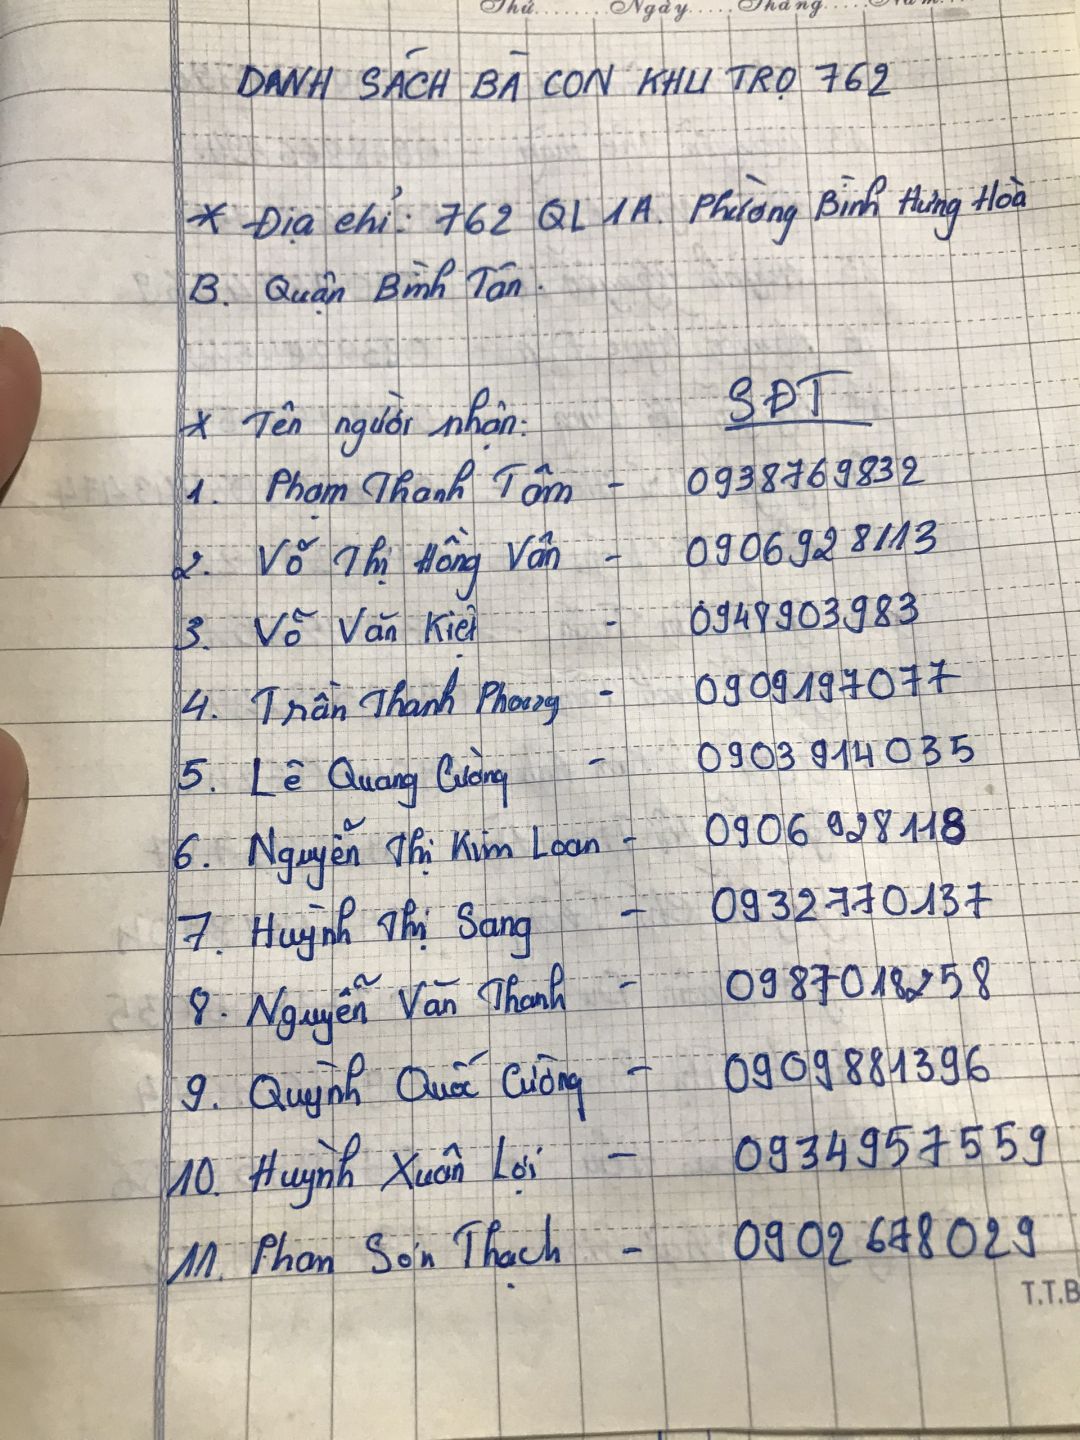 Thứ.......Ngày.....Tháng....Năm....
DANH SÁCH BÀ CON KHU TRỌ 762
* Địa chỉ: 762 QL 1A. Phường Bình Hưng Hoà
B. Quận Bình Tân.
* Tên người nhận: SĐT
1. Phạm Thanh Tâm - 0938769832
2. Võ Thị Hồng Vân - 0906928113
3. Võ Văn Kiệt - 0948903983
4. Trần Thanh Phong - 0909197077
5. Lê Quang Cường - 0903914035
6. Nguyễn Thị Kim Loan - 0906928118
7. Huỳnh Thị Sang - 0932770137
8. Nguyễn Văn Thanh - 0987018258
9. Quỳnh Quốc Cường - 0909881396
10. Huỳnh Xuân Lợi - 0934957559
11. Phan Sơn Thạch - 0902678029
T.T.B